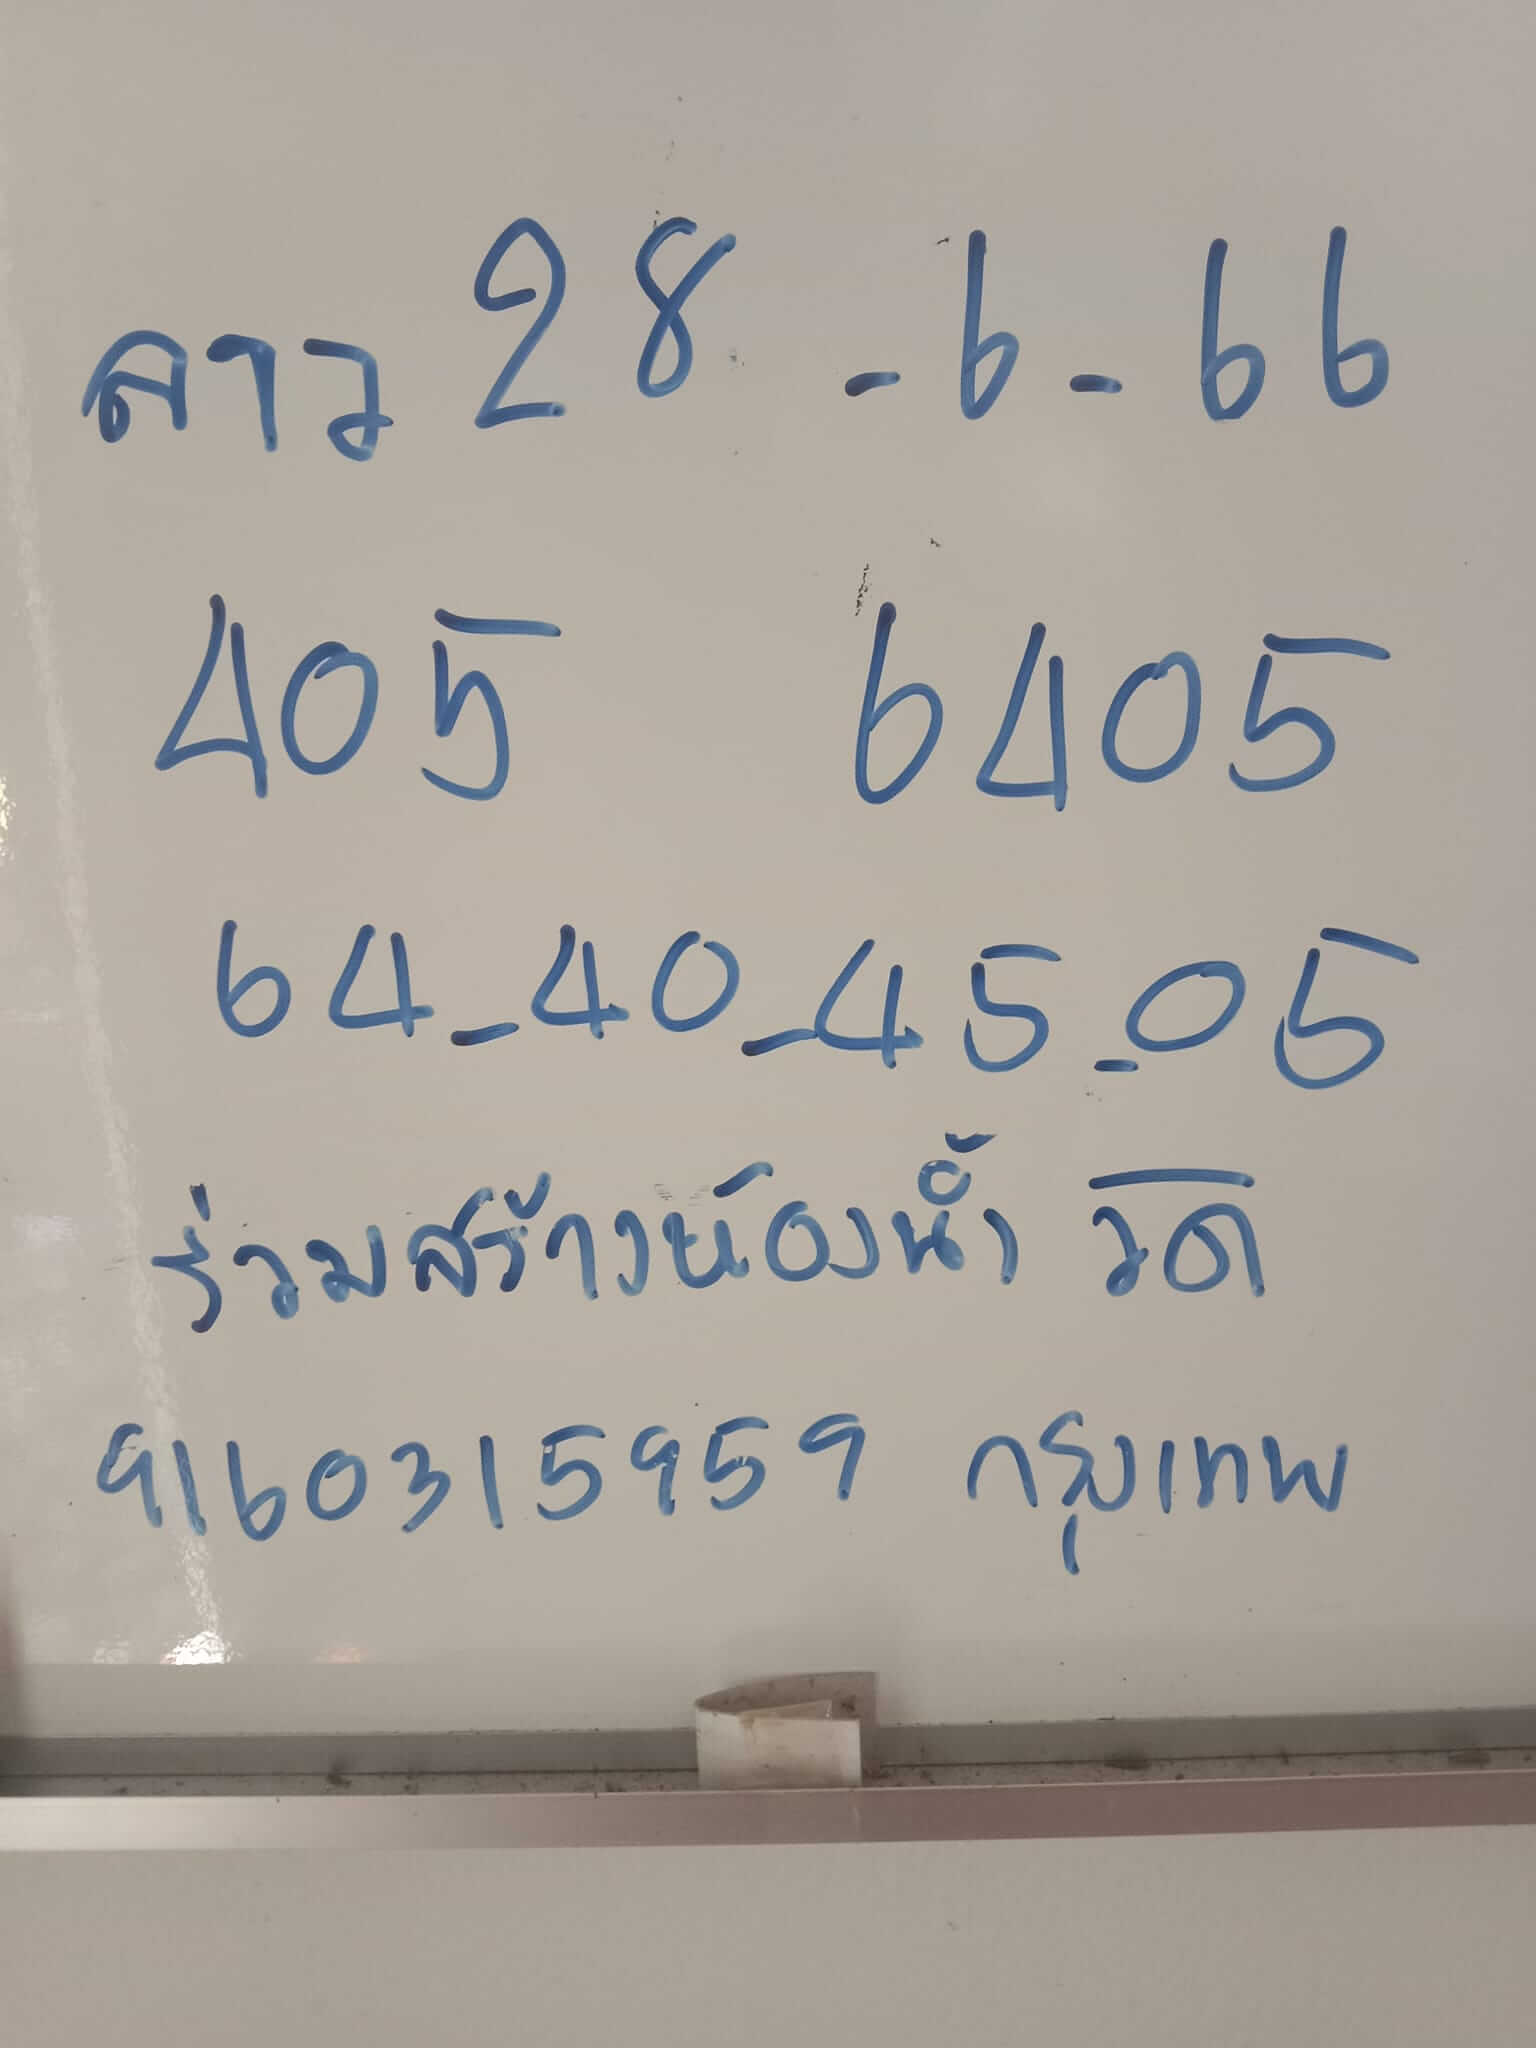 ลาว 28 - 6 - 66
405 6405
64 - 40 - 45 - 05
ร่วมสร้างห้องน้ำ วัด
9160315959 กรุงเทพ